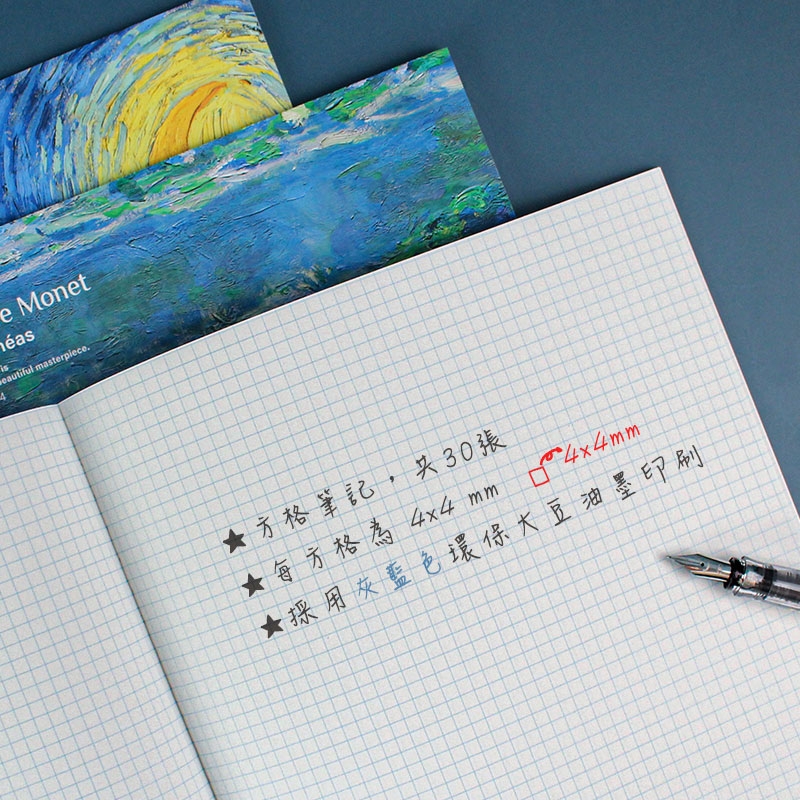 e Monet
néas
is
beautiful masterpiece.
4
★方格筆記，共30張
★每方格為 4x4 mm
4x4mm
★採用灰藍色環保大豆油墨印刷